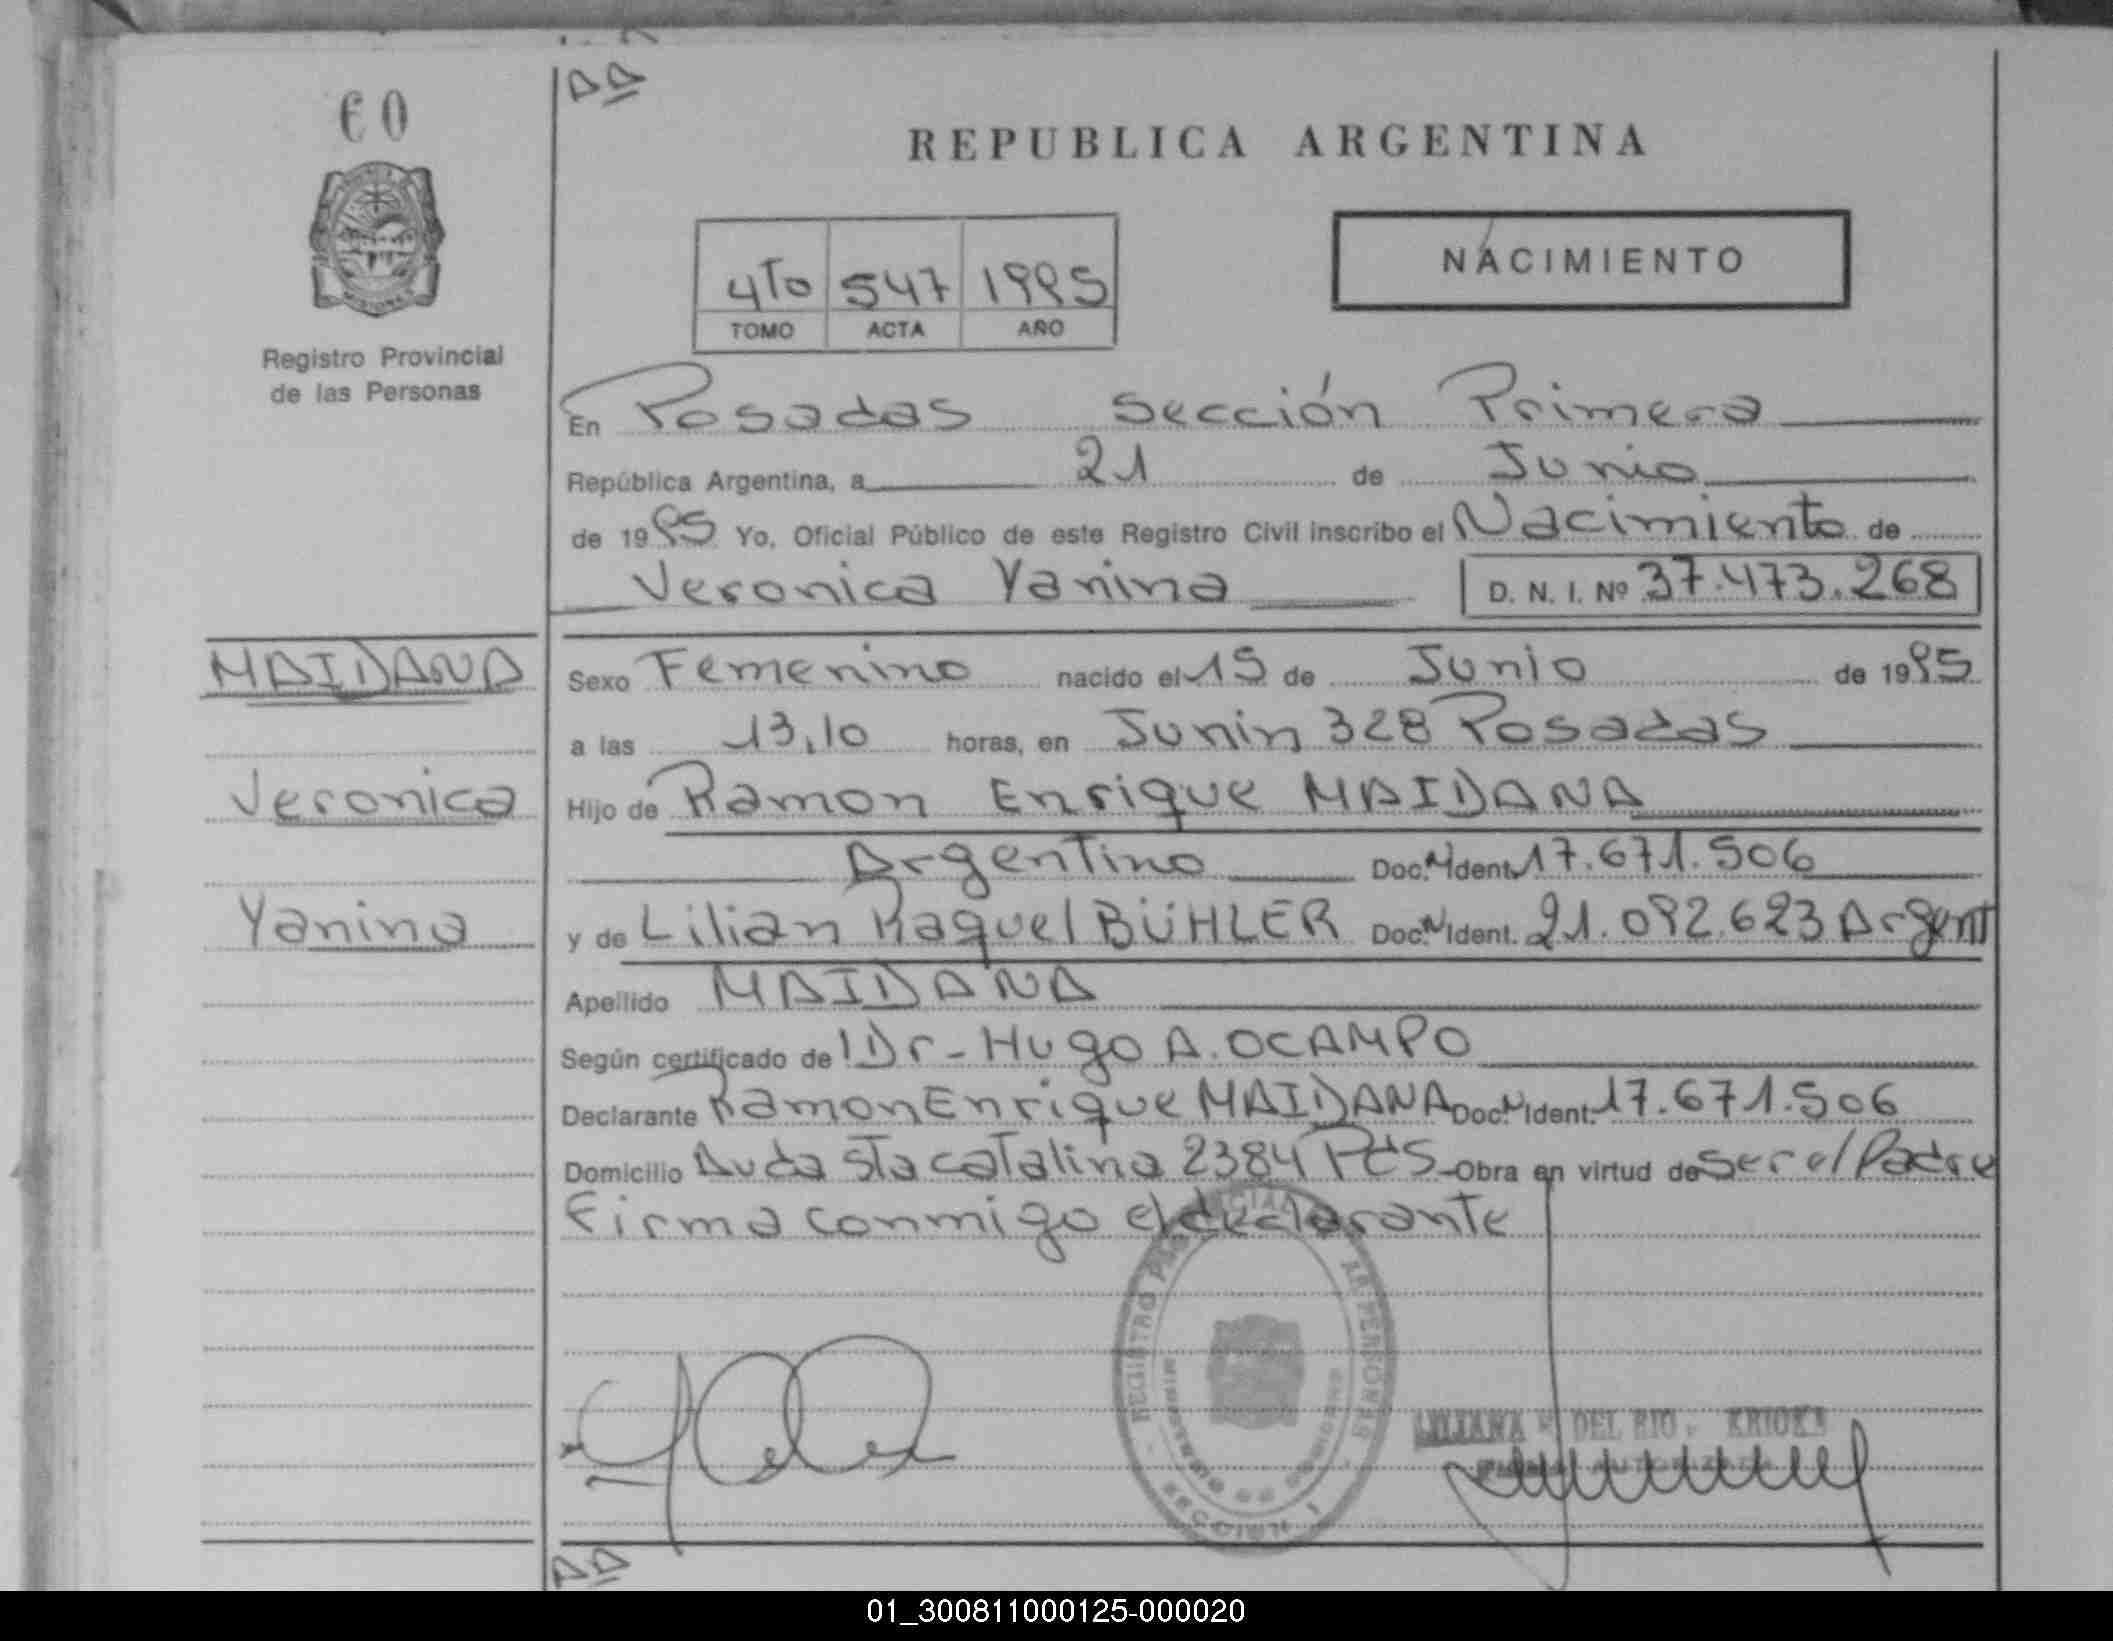 60
REPUBLICA ARGENTINA
NACIMIENTO
4To 547 1995
TOMO ACTA AÑO
Registro Provincial
de las Personas
En Posadas Sección Primera
República Argentina, a 21 de Junio
de 1995 Yo, Oficial Público de este Registro Civil inscribo el Nacimiento de
Veronica Yanina D. N. I. Nº 37.473.268
MAIDANA
Veronica
Yanina
Sexo Femenino nacido el 15 de Junio de 1995
a las 13,10 horas, en Junin 328 Posadas
Hijo de Ramon Enrique MAIDANA
Argentino Doc. N Ident. 17.671.506
y de Lilian Raquel BÜHLER Doc. N Ident. 21.092.623 Argent
Apellido MAIDANA
Según certificado de Dr - Hugo A. OCAMPO
Declarante Ramon Enrique MAIDANA Doc. N Ident. 17.671.506
Domicilio Avda Sta catalina 2384 Pds - Obra en virtud de Ser el Padre
Firma conmigo el declarante
REGISTRO PERSONAS
SECCION 1
LILIANA DEL RIO
01_300811000125-000020